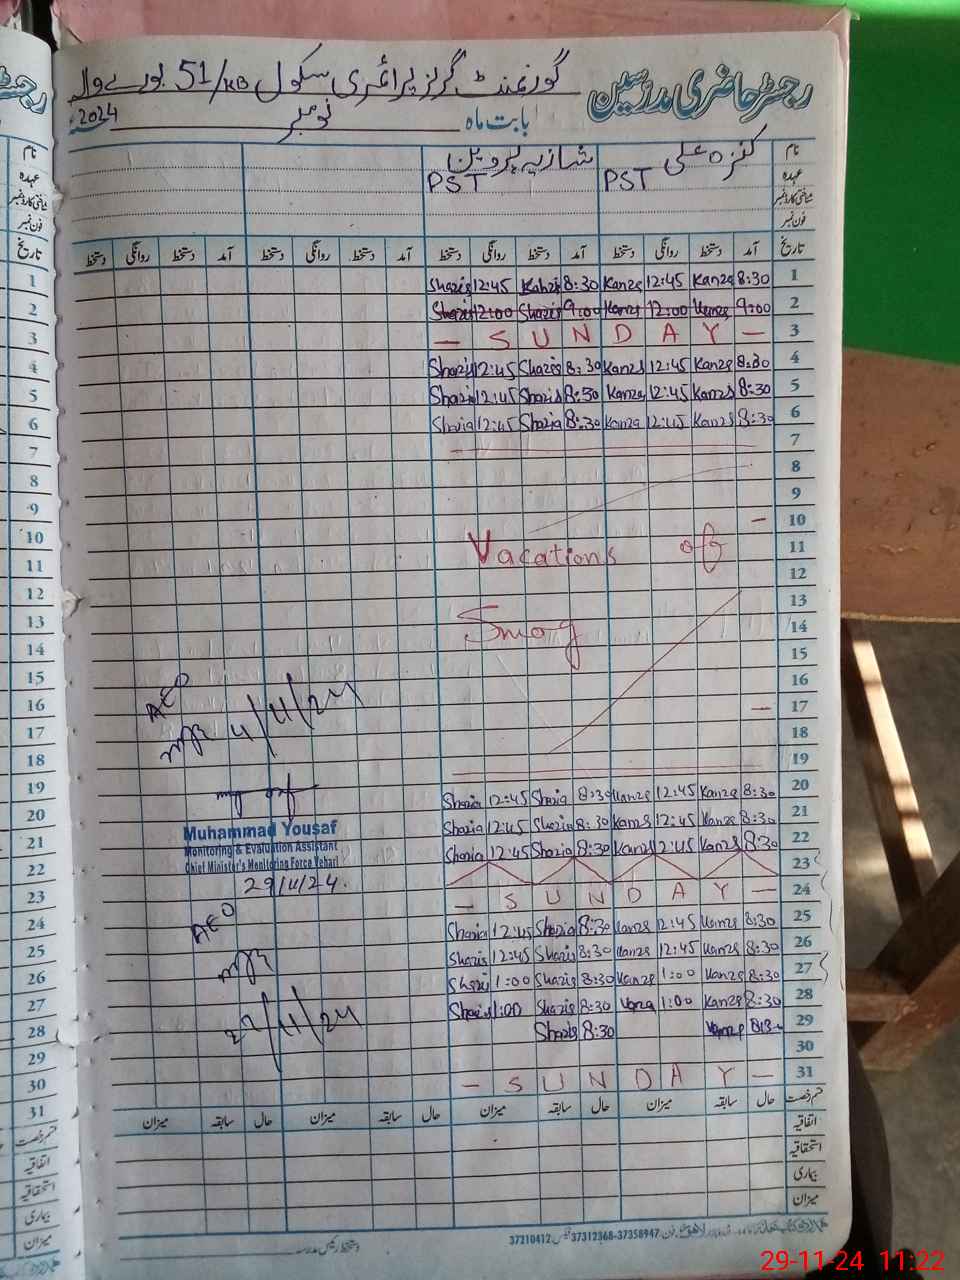 رجسٹر حاضری مدرسین گورنمنٹ گرلز پرائمری سکول 51/KB بورے والہ
بابت ماہ نومبر 2024
نام کنزہ علی شازیہ پروین
عہدہ PST PST
شناختی کارڈ نمبر
فون نمبر
تاریخ آمد دستخط روانگی دستخط آمد دستخط روانگی دستخط آمد دستخط روانگی دستخط آمد دستخط روانگی دستخط
1 8:30 Kanza 12:45 Kanza 8:30 12:45 Shazia
2 9:00 Kanza 12:00 Kanza 9:00 Shazia 12:00 Shazia
3 — SUNDAY —
4 8:30 Kanza 12:45 Kanza 8:30 Shazia 12:45 Shazia
5 8:30 Kanza 12:45 Kanza 8:30 Shazia 12:45 Shazia
6 8:30 Kanza 12:45 Kanza 8:30 Shazia 12:45 Shazia
7
8
9
10
11 Vacations of
12
13
14 Smog
15
16
17
18
19
AEO
4/11/24
20 8:30 Kanza 12:45 Kanza 8:30 Shazia 12:45 Shazia
21 8:30 Kanza 12:45 Kanza 8:30 Shazia 12:45 Shazia
22 8:30 Kanza 12:45 Kanza 8:30 Shazia 12:45 Shazia
23
24 — SUNDAY —
Muhammad Yousaf
Monitoring & Evaluation Assistant
Chief Minister's Monitoring Force Vehari
29/11/24.
25 8:30 Kanza 12:45 Kanza 8:30 Shazia 12:45 Shazia
26 8:30 Kanza 12:45 Kanza 8:30 Shazia 12:45 Shazia
27 8:30 Kanza 1:00 Kanza 8:30 Shazia 1:00 Shazia
28 8:30 Kanza 1:00 Kanza 8:30 Shazia 1:00 Shazia
29 Kanza 8:30 Shazia
30
31 — SUNDAY —
AEO
27/11/24
قسم رخصت حال سابقہ میزان حال سابقہ میزان حال سابقہ میزان حال سابقہ میزان
اتفاقیہ
استحقاقیہ
بیماری
میزان
دستخط رئیس مدرسہ
37210412 37312368-37358947
29-11-24 11:22